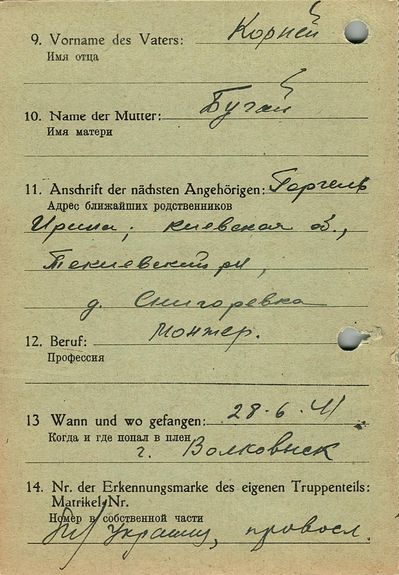 9. Vorname des Vaters: Корней
Имя отца
10. Name der Mutter: Бугай
Имя матери
11. Anschrift der nächsten Angehörigen: Горгель
Адрес ближайших родственников
Ирина; Киевская об.,
рн,
д. Снигоревка
12. Beruf: Монтер.
Профессия
13 Wann und wo gefangen: 28-6-41
Когда и где попал в плен
г. Волковыск
14. Nr. der Erkennungsmarke des eigenen Truppenteils:
Matrikel-Nr.
Номер в собственной части
Украинц, провосл.